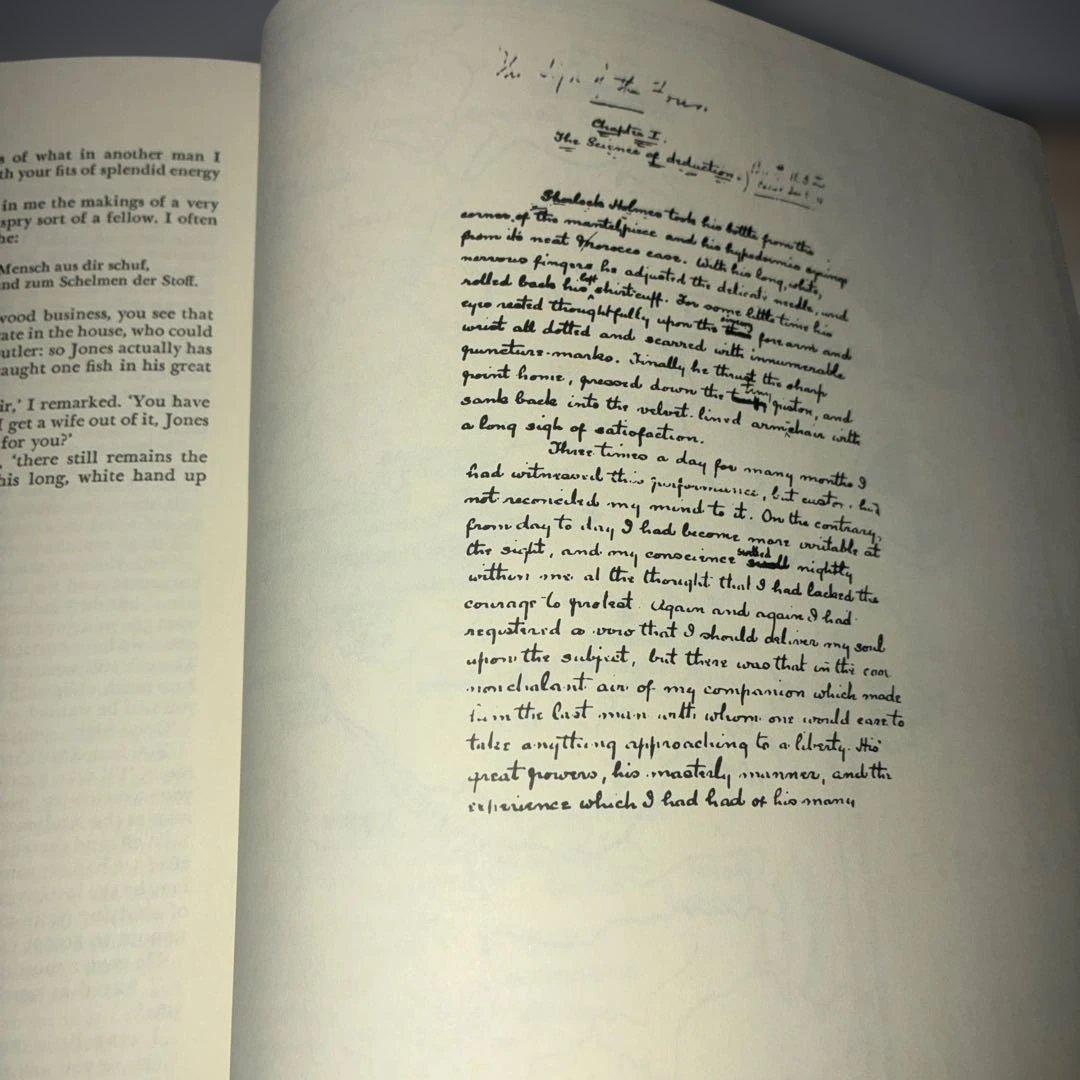 s of what in another man I
th your fits of splendid energy
in me the makings of a very
spry sort of a fellow. I often
he:
Mensch aus dir schuf,
nd zum Schelmen der Stoff.
wood business, you see that
ate in the house, who could
utler: so Jones actually has
aught one fish in his great
ir,’ I remarked. ‘You have
I get a wife out of it, Jones
for you?’
, ‘there still remains the
his long, white hand up
The Sign of the Four.
Chapter I.
The Science of deduction.
Sherlock Holmes took his bottle from the
corner of the mantelpiece and his hypodermic syringe
from its neat Morocco case. With his long, white,
nervous fingers he adjusted the delicate needle, and
rolled back his left shirtcuff. For some little time his
eyes rested thoughtfully upon the sinewy forearm and
wrist all dotted and scarred with innumerable
puncture-marks. Finally he thrust the sharp
point home, pressed down the tiny piston, and
sank back into the velvet-lined armchair with
a long sigh of satisfaction.
Three times a day for many months I
had witnessed this performance, but custom had
not reconciled my mind to it. On the contrary,
from day to day I had become more irritable at
the sight, and my conscience swelled nightly
within me at the thought that I had lacked the
courage to protest. Again and again I had
registered a vow that I should deliver my soul
upon the subject, but there was that in the cool
nonchalant air of my companion which made
him the last man with whom one would care to
take anything approaching to a liberty. His
great powers, his masterly manner, and the
experience which I had had of his many